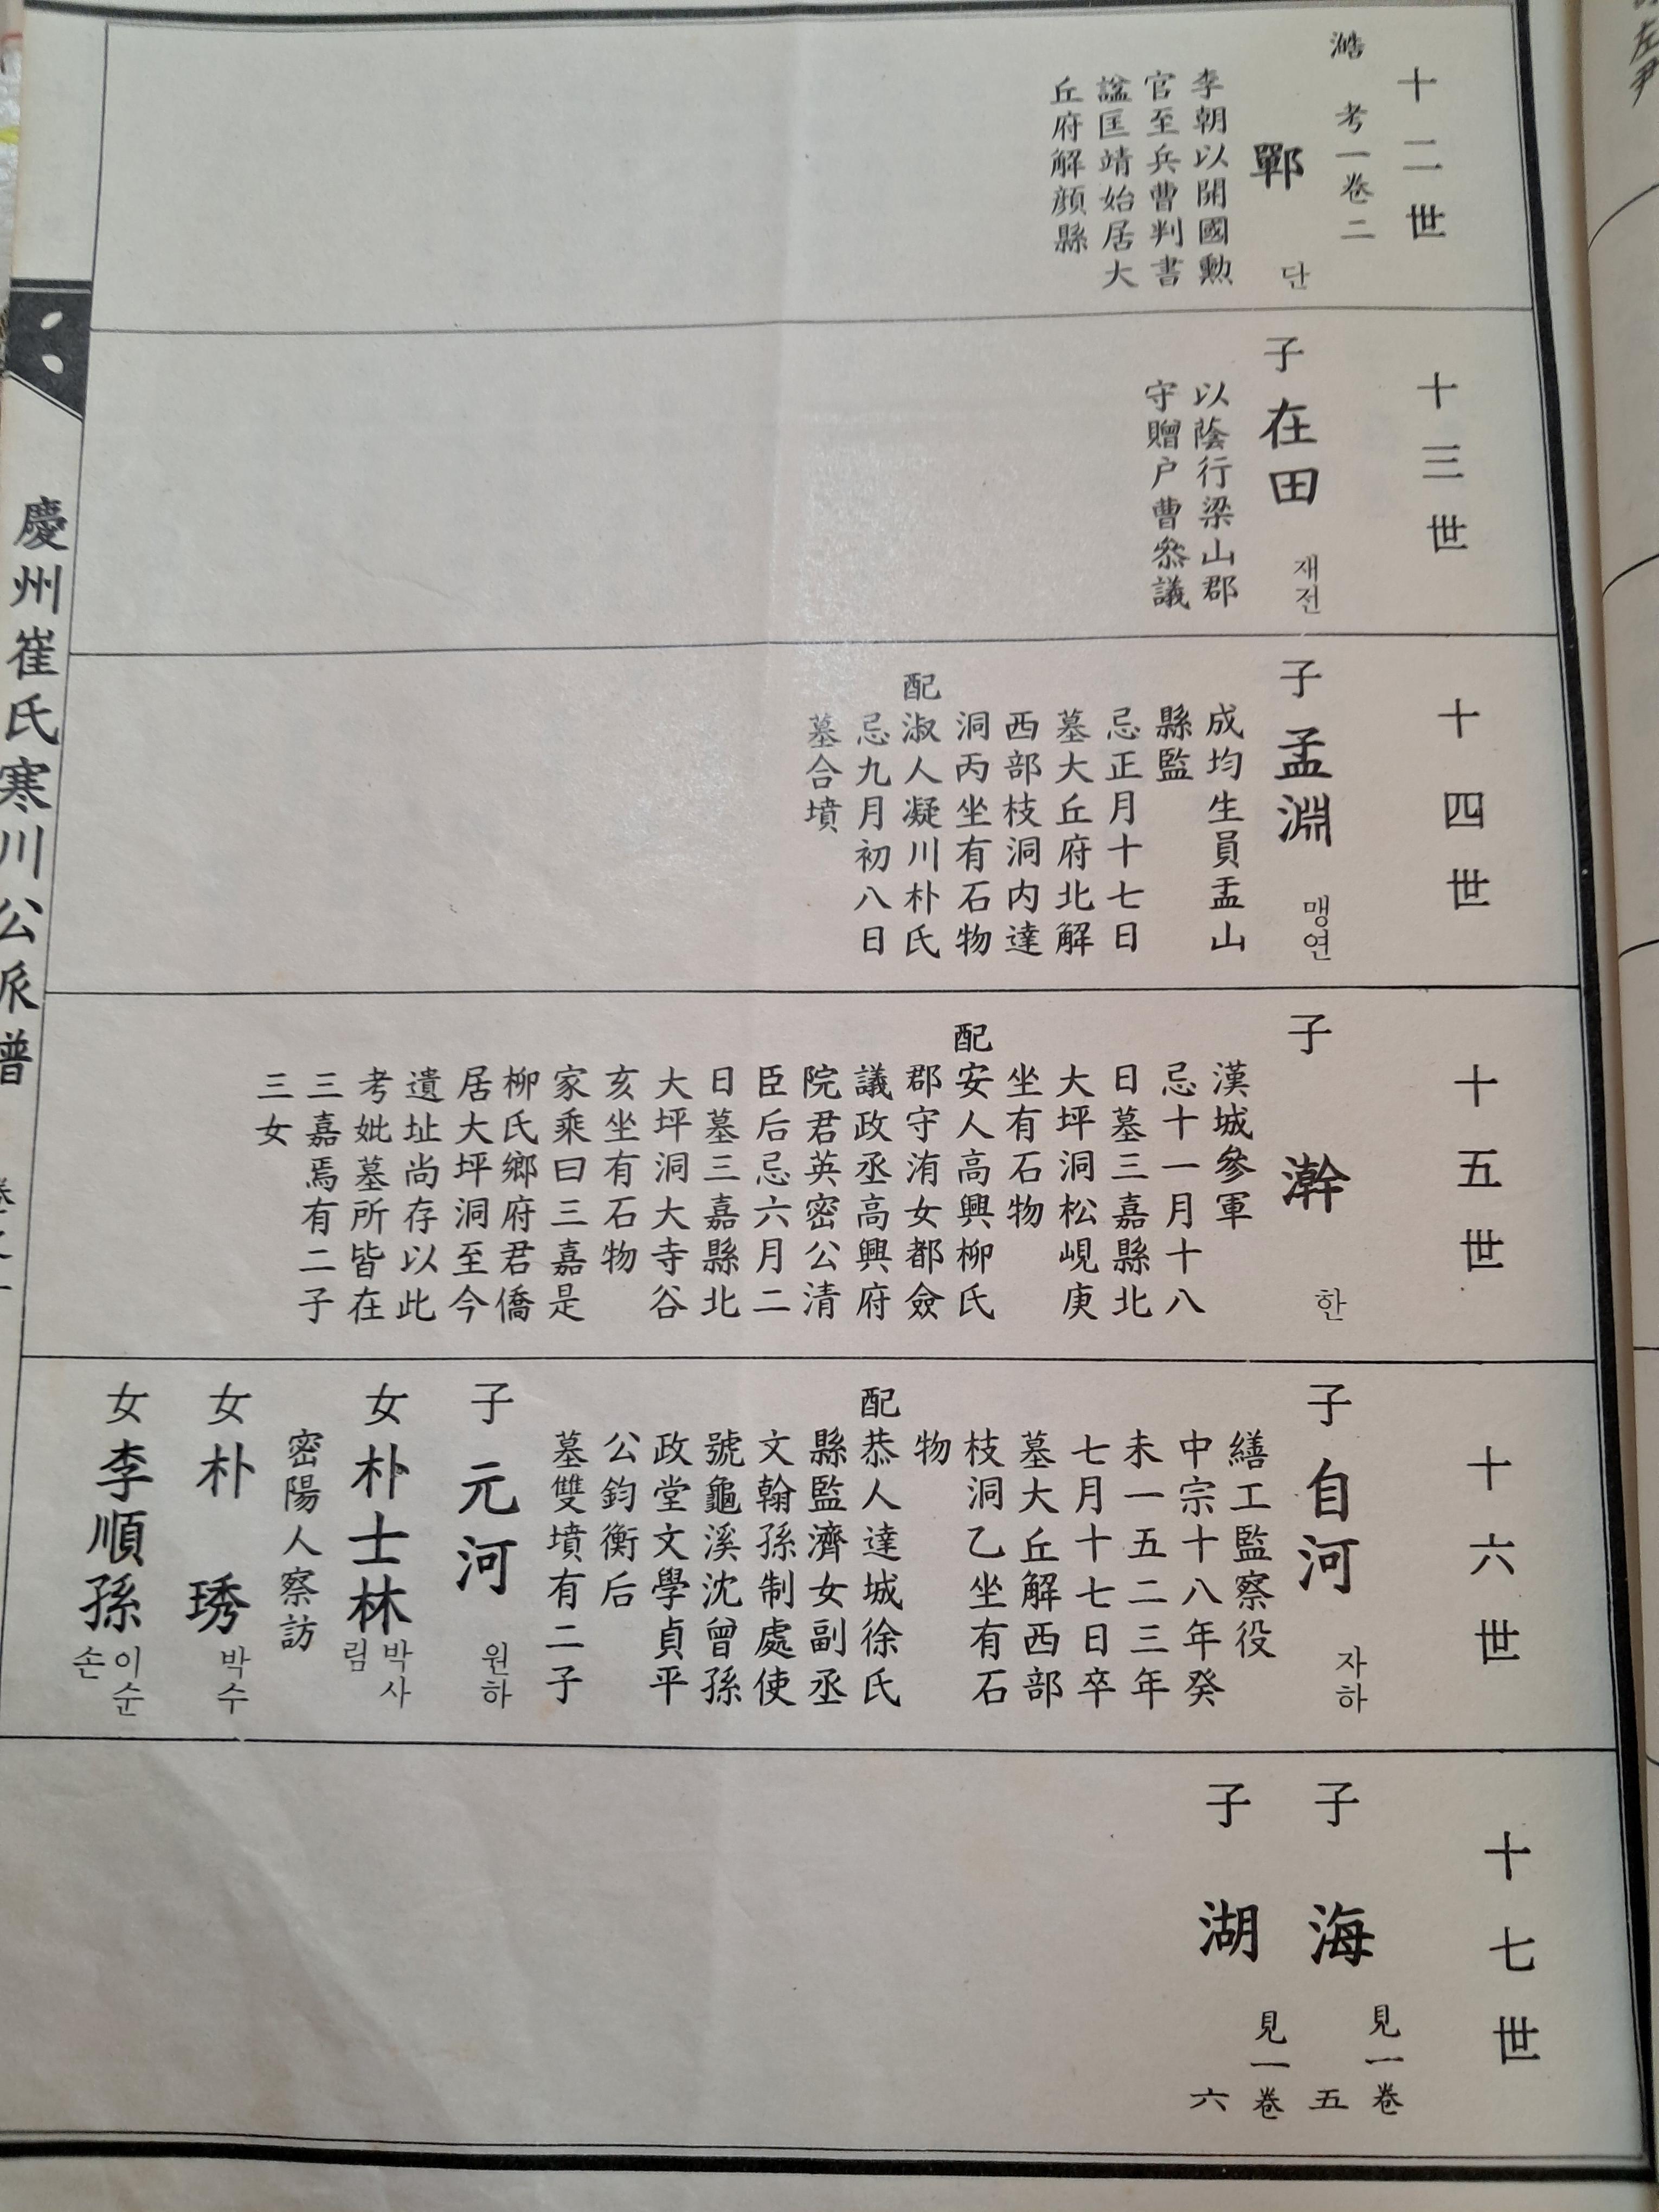 十二世
澔 考一卷二
鄲 단
李朝以開國勳
官至兵曹判書
諡匡靖始居大
丘府解顔縣
十三世
子 在田 재전
以蔭行梁山郡
守贈户曹叅議
十四世
子 孟淵 맹연
成均生員盂山
縣監
忌正月十七日
墓大丘府北解
西部枝洞内達
洞丙坐有石物
配淑人凝川朴氏
忌九月初八日
墓合墳
十五世
子 瀚 한
漢城參軍
忌十一月十八
日墓三嘉縣北
大坪洞松峴庚
坐有石物
配安人高興柳氏
郡守洧女都僉
議政丞高興府
院君英密公清
臣后忌六月二
日墓三嘉縣北
大坪洞大寺谷
亥坐有石物
家乘曰三嘉是
柳氏鄉府君僑
居大坪洞至今
遺址尚存以此
考妣墓所皆在
三嘉焉有二子
三女
十六世
子 自河 자하
繕工監察役
中宗十八年癸
未一五二三年
七月十七日卒
墓大丘解西部
枝洞乙坐有石
物
配恭人達城徐氏
縣監濟女副丞
文翰孫制處使
號龜溪沈曾孫
政堂文學貞平
公鈞衡后
墓雙墳有二子
子 元河 원하
女 朴士林 박사림
密陽人察訪
女 朴琇 박수
女 李順孫 이순손
十七世
子 海 見一卷五
子 湖 見一卷六
慶州崔氏寒川公派譜